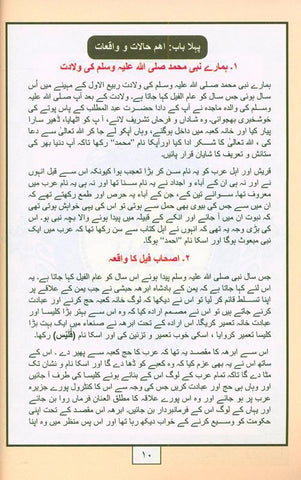 پہلا باب: اہم حالات و واقعات
۱۔ ہمارے نبی محمد صلی اللہ علیہ وسلم کی ولادت
ہمارے نبی محمد صلی اللہ علیہ وسلم کی ولادت ربیع الاول کے مہینے میں اُس
سال ہوئی جس سال کو عام الفیل کہا جاتا ہے۔ ولادت کے بعد آپ صلی اللہ علیہ
وسلم کی والدہ ماجدہ نے آپ کے دادا حضرت عبد المطلب کے پاس پوتے کی
خوشخبری بھجوائی۔ وہ شاداں و فرحاں تشریف لائے، آپ کو اٹھایا، ڈھیر سارا
پیار کیا اور خانہ کعبہ میں داخل ہوگئے، وہاں آپکو لے جا کر اللہ تعالیٰ سے دعا
کی، اللہ تعالیٰ کا شکر ادا کیا اورآپکا نام "محمد" رکھا تاکہ آپ دنیا بھر کی
ستائش و تعریف کا شایان قرار پائیں۔
قریش اور اہل عرب کو یہ نام سن کر بڑا تعجب ہوا کیونکہ اس سے قبل انہوں
نے نہ ہی ان کے آباء و اجداد نے یہ نام سنا تھا اور نہ ہی یہ نام عرب میں
معروف تھا، سوائے تین کے، جن کے آباء یہ حرص اور طمع رکھتے تھے کہ
ان میں سے جس کی بیوی بھی حمل سے ہوتی تو اس کی یہی خواہش ہوتی تھی
کہ نبوت ان میں آ جائے اور انکے کے قبیلہ میں پیدا ہونے والا بچہ نبی ہو۔ اس
کی بڑی وجہ یہ تھی کہ انہوں نے اہل کتاب سے سن رکھا تھا کہ عرب میں ایک
نبی مبعوث ہوگا اور اسکا نام "احمد" ہوگا۔
۲۔ اصحاب فیل کا واقعہ
جس سال نبی صلی اللہ علیہ وسلم پیدا ہوئے اس سال کو عام الفیل کہا جاتا ہے۔ یہ
اس لئے کہا جاتا ہے کہ یمن کے بادشاہ ابرھہ حبشی نے جب یمن کے علاقے پر
اپنا تسلط قائم کر لیا تو اس نے دیکھا کہ لوگ خانہ کعبہ حج کرنے اور عبادت
کرنے جاتے ہیں تو اس نے مصمم ارادہ کیا کہ وہ اس سے بہتر بڑا کلیسا اور
عبادت خانہ تعمیر کریگا۔ اس ارادہ کے تحت ابرھہ نے صنعاء میں ایک بہت بڑا
کلیسا تعمیر کروایا، اسکی خوب تعمیر و تزئین کی اور اسکا نام (قُلَّیس) رکھا۔
اس سے ابرھہ کا مقصد یہ تھا کہ عرب کا حج کعبہ سے پھیر دے۔ اس کے
ساتھ اس نے یہ بھی عزم کیا کہ وہ کعبے کو ڈھا دے گا اور اسکا نام و نشان تک
مٹا دے گا تاکہ تمام عرب کے لوگ اس کے بنائے ہوئے کلیسا کی طرف آ جائیں
اور وہاں ہی حج اور عبادت کریں جس کی وجہ سے اس کا کنٹرول پورے جزیرہ
عرب پر ہو جائے اور وہ اس پورے علاقہ کا مطلق العنان فرماں روا بن جائے
اور یہاں کے لوگ اس کے فرمانبردار بن جائیں۔ ابرھہ اس مقصد کے تحت اپنی
حکومت کو وسیع کرنے کے خواب دیکھ رہا تھا اور اس پس منظر میں وہ اپنا
۱۰